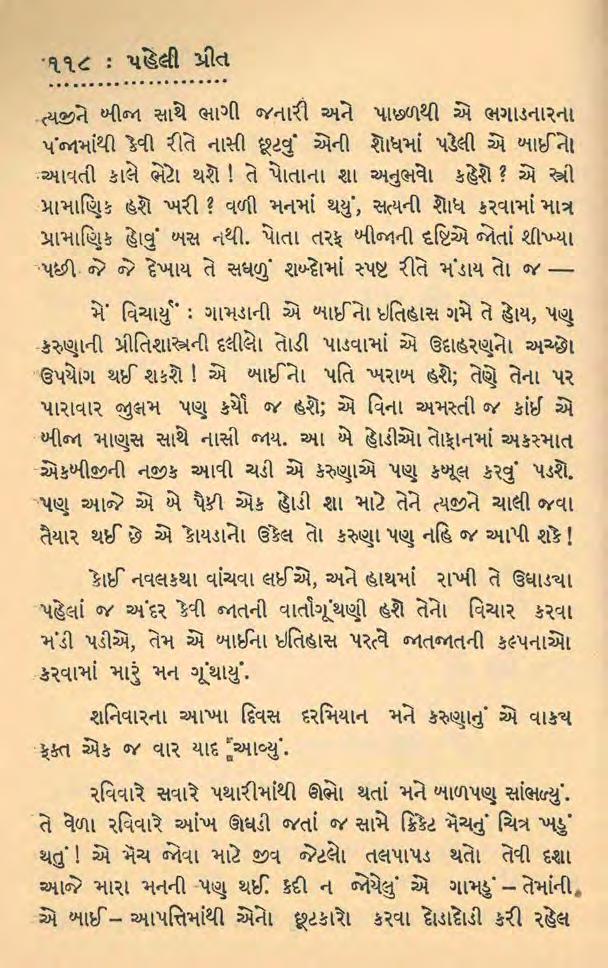 ૧૧૮ : પહેલી પ્રીત
ત્યજીને બીજા સાથે ભાગી જનારી અને પાછળથી એ ભગાડનારના
પંજામાંથી કેવી રીતે નાસી છૂટવું એની શોધમાં પડેલી એ બાઈનો
આવતી કાલે ભેટો થશે ! તે પોતાના શા અનુભવો કહેશે ? એ સ્ત્રી
પ્રામાણિક હશે ખરી ? વળી મનમાં થયું, સત્યની શોધ કરવામાં માત્ર
પ્રામાણિક હોવું બસ નથી. પોતા તરફ બીજાની દૃષ્ટિએ જોતાં શીખ્યા
પછી જે જે દેખાય તે સઘળું શબ્દોમાં સ્પષ્ટ રીતે મંડાય તો જ —
મેં વિચાર્યું : ગામડાની એ બાઈનો ઇતિહાસ ગમે તે હોય, પણ
કરુણાની પ્રીતિશાસ્ત્રની દલીલો તોડી પાડવામાં એ ઉદાહરણનો અચ્છો
ઉપયોગ થઈ શકશે ! એ બાઈનો પતિ ખરાબ હશે; તેણે તેના પર
પારાવાર જુલમ પણ કર્યો જ હશે; એ વિના અમસ્તી જ કાંઈ એ
બીજા માણસ સાથે નાસી જાય. આ બે હોડીઓ તોફાનમાં અકસ્માત
એકબીજીની નજીક આવી ચડી એ કરુણાએ પણ કબૂલ કરવું પડશે.
પણ આજે એ બે પૈકી એક હોડી શા માટે તેને ત્યજીને ચાલી જવા
તૈયાર થઈ છે એ કોયડાનો ઉકેલ તો કરુણા પણ નહિ જ આપી શકે !
કોઈ નવલકથા વાંચવા લઈએ, અને હાથમાં રાખી તે ઉઘાડ્યા
પહેલાં જ અંદર કેવી જાતની વાર્તાગૂંથણી હશે તેનો વિચાર કરવા
મંડી પડીએ, તેમ એ બાઈના ઇતિહાસ પરત્વે જાતજાતની કલ્પનાઓ
કરવામાં મારું મન ગૂંથાયું.
શનિવારના આખા દિવસ દરમિયાન મને કરુણાનું એ વાક્ય
ફક્ત એક જ વાર યાદ આવ્યું.
રવિવારે સવારે પથારીમાંથી ઊભો થતાં મને બાળપણ સાંભળ્યું.
તે વેળા રવિવારે આંખ ઊઘડી જતાં જ સામે ક્રિકેટ મૅચનું ચિત્ર ખડું
થતું ! એ મૅચ જોવા માટે જીવ જેટલો તલપાપડ થતો તેવી દશા
આજે મારા મનની પણ થઈ. કદી ન જોયેલું એ ગામડું – તેમાંની
એ બાઈ – આપત્તિમાંથી એનો છૂટકારો કરવા દોડાદોડી કરી રહેલ